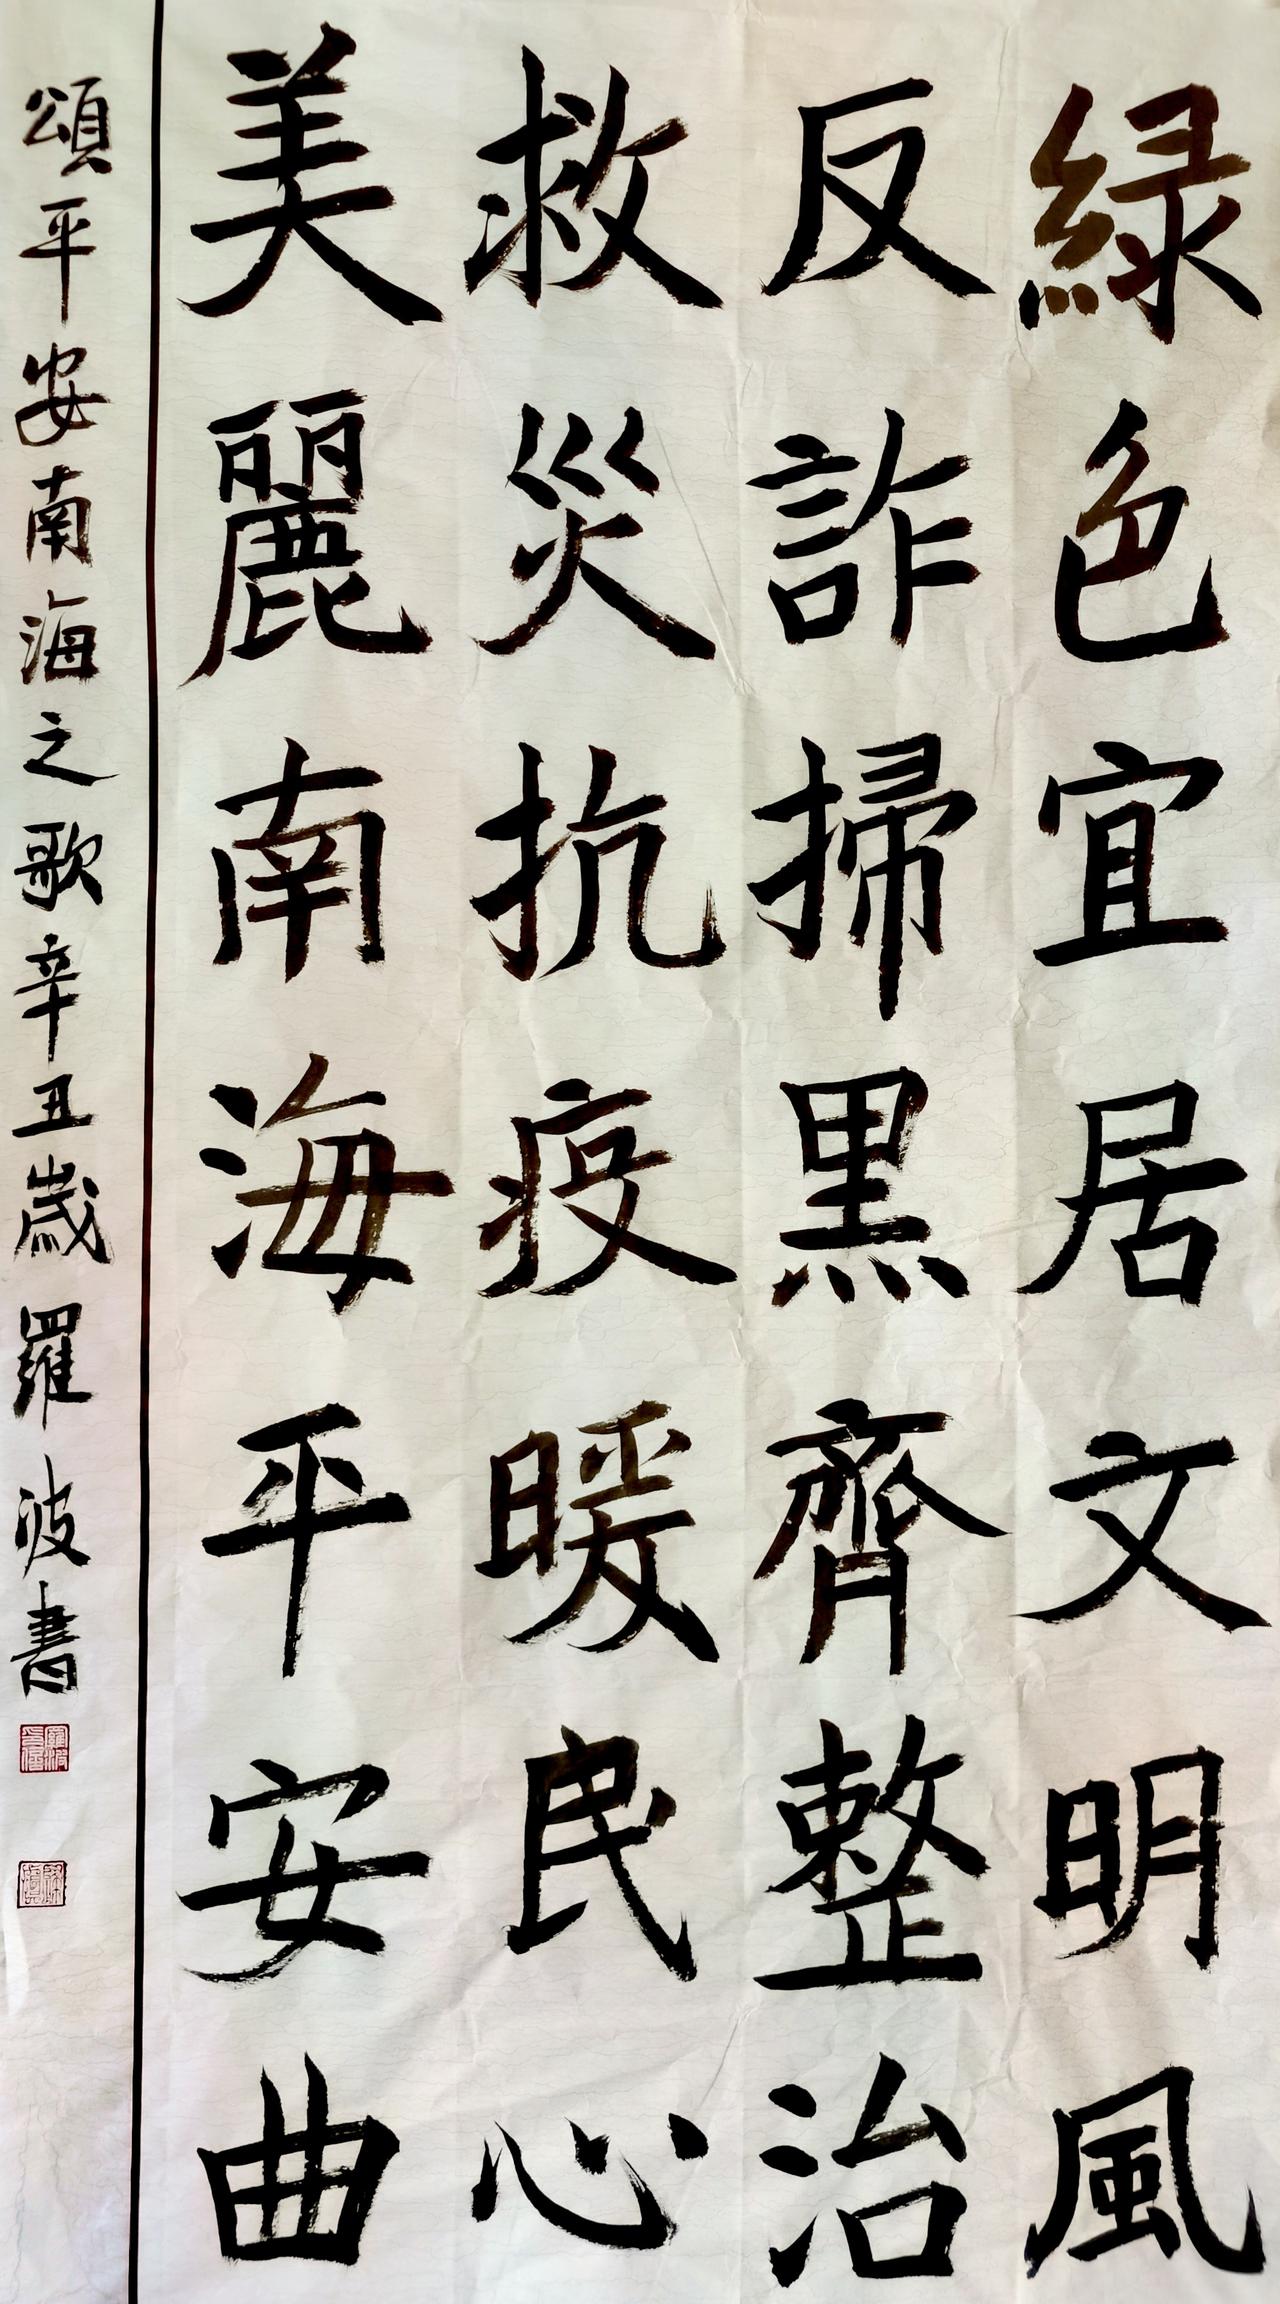 緑色宜居文明風
反詐掃黑齊整治
救災抗疫暖民心
美麗南海平安曲
頌平安南海之歌辛丑歲羅波書